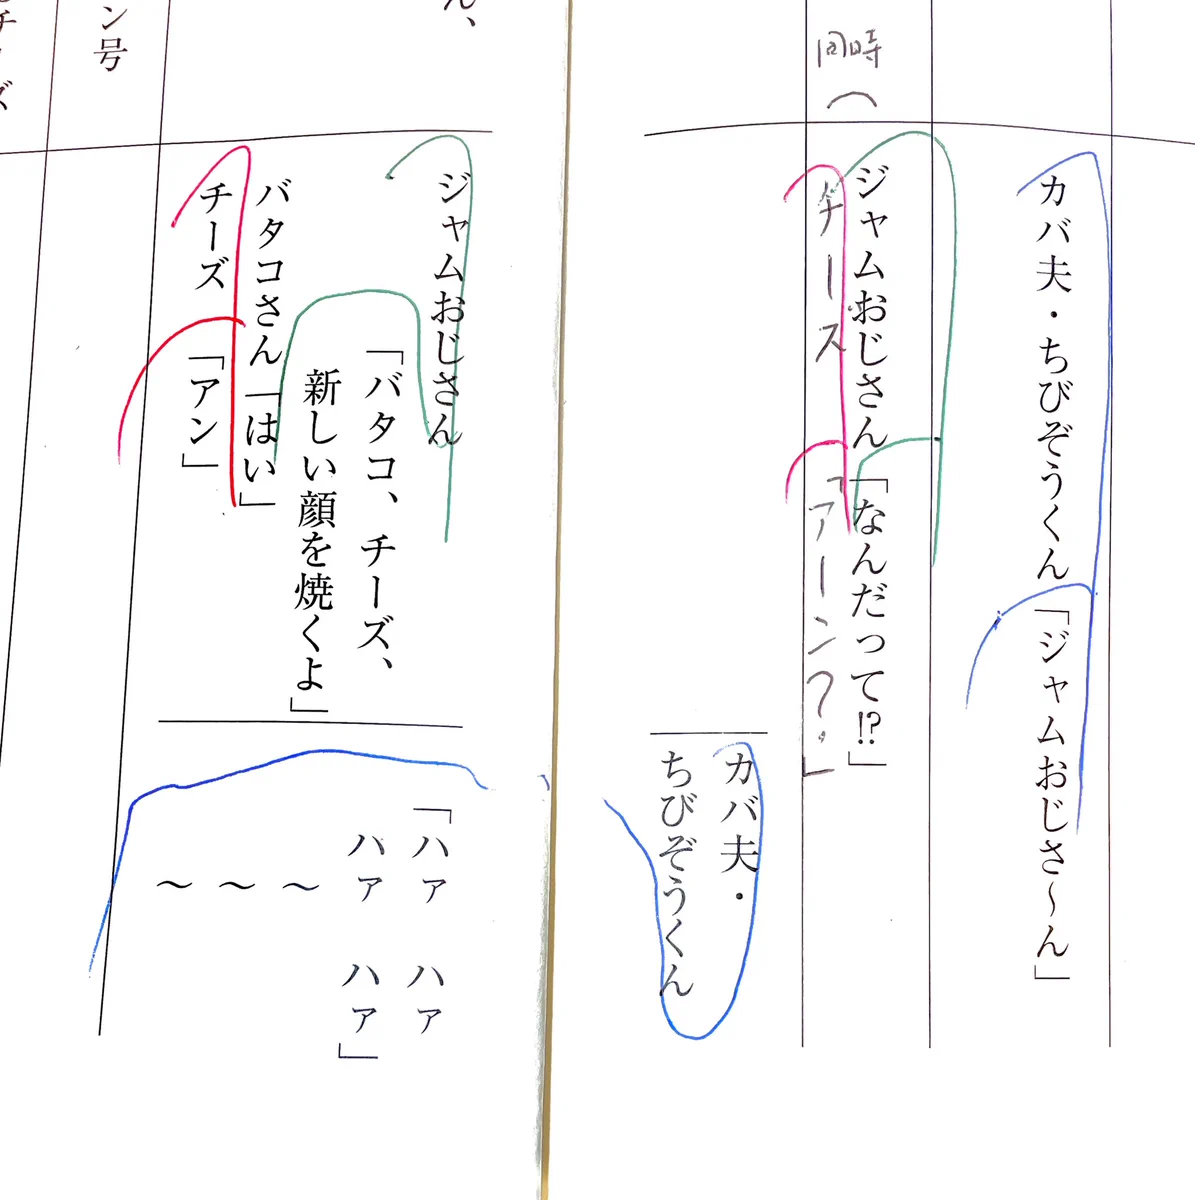 カバ夫・ちびぞうくん「ジャムおじさ〜ん」
同時
ジャムおじさん「なんだって!?」
チーズ「アーン?。」
カバ夫・
ちびぞうくん
ん、
ジャムおじさん
「バタコ、チーズ、
新しい顔を焼くよ」
バタコさん「はい」
チーズ「アン」
「ハァ ハァ
ハァ ハァ」
〜
〜
〜
ン号